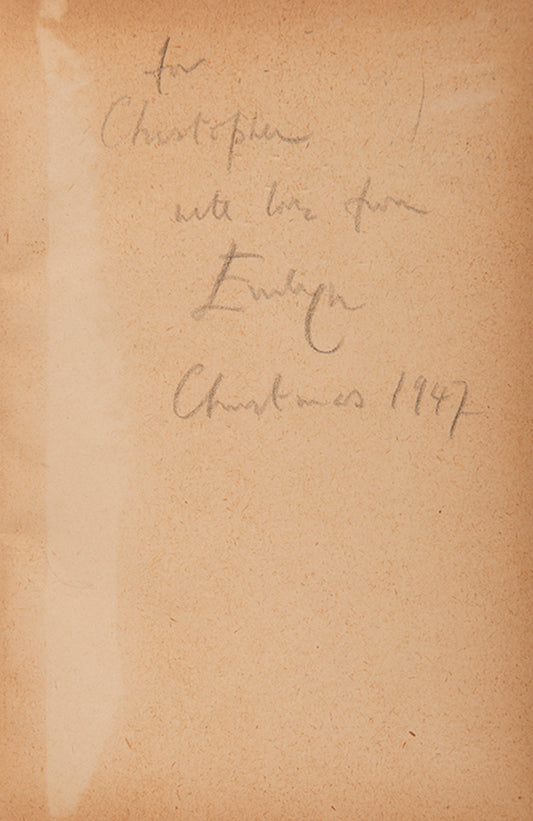 for
Christopher
with love from
Evelyn
Christmas 1947